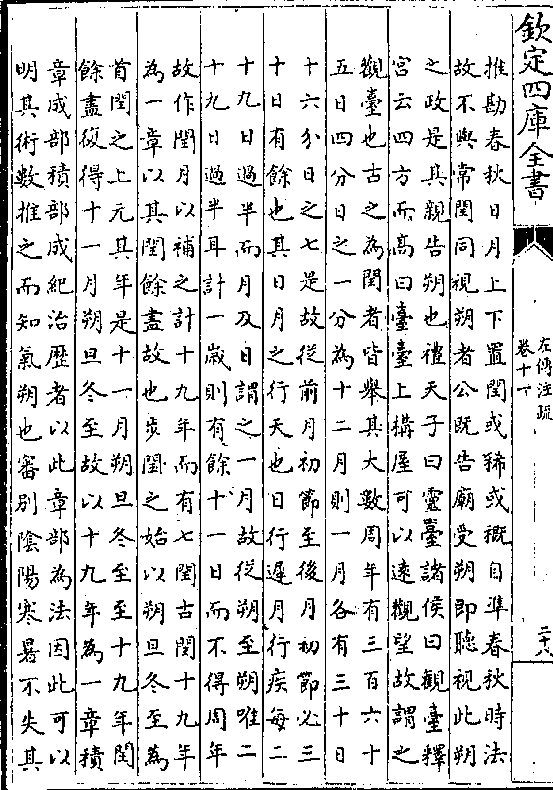 欽定四庫全書
左傳注疏
卷十一
二十八
推勘春秋日月上下置閏或稀或概自準春秋時法
故不與常閏同視朔者公既告廟受朔即聽視此朔
之政是其親告朔也禮天子曰靈臺諸侯曰觀臺釋
宮云四方而高曰臺臺上構屋可以遠觀望故謂之
觀臺也古之為閏者皆舉其大數周年有三百六十
五日四分日之一分為十二月則一月各有三十日
十六分日之七是故從前月初節至後月初節必三
十日有餘也其日月之行天也日行遲月行疾每二
十九日過半而月及日謂之一月故從朔至朔唯二
十九日過半耳計一歲則有餘十一日而不得周年
故作閏月以補之計十九年而有七閏古閏十九年
為一章以其閏餘盡故也步閏之始以朔旦冬至為
首閏之上元其年是十一月朔旦冬至至十九年閏
餘盡復得十一月朔旦冬至故以十九年為一章積
章成部積部成紀治歴者以此章部為法因此可以
明其術數推之而知氣朔也審别陰陽寒暑不失其